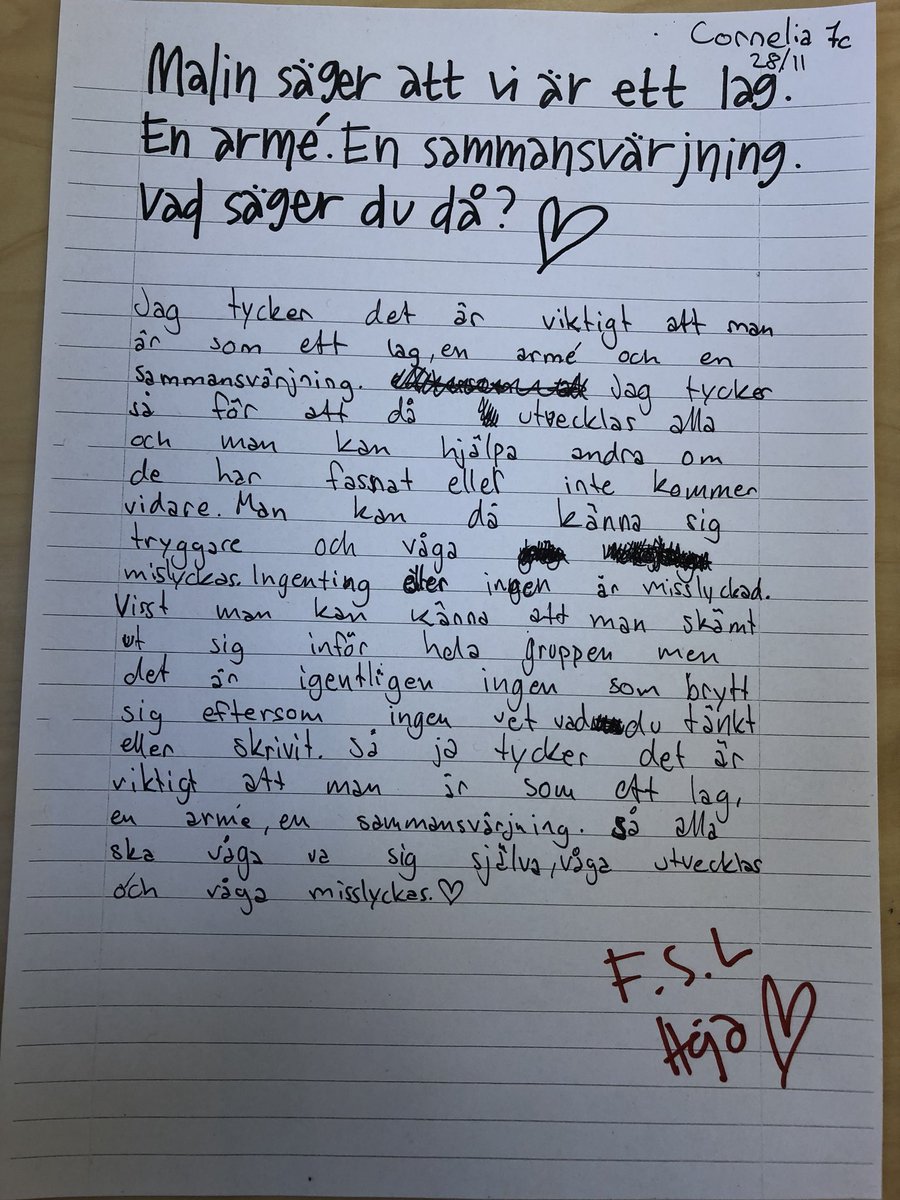 Cornelia 7c
28/11
Malin säger att vi är ett lag.
En armé. En sammansvärjning.
Vad säger du då?
Jag tycker det är viktigt att man
är som ett lag, en armé och en
sammansvärjning. Jag tycker
så för att då utvecklas alla
och man kan hjälpa andra om
de har fasnat eller inte kommer
vidare. Man kan då känna sig
tryggare och våga
mislyckas. Ingenting eller ingen är misslyckad.
Visst man kan känna att man skämt
ut sig inför hela gruppen men
det är igentligen ingen som brytt
sig eftersom ingen vet vad du tänkt
eller skrivit. Så ja tycker det är
viktigt att man är som ett lag,
en armé, en sammansvärjning. Så alla
ska våga va sig själva, våga utvecklas
och våga misslyckas.
F.S.L